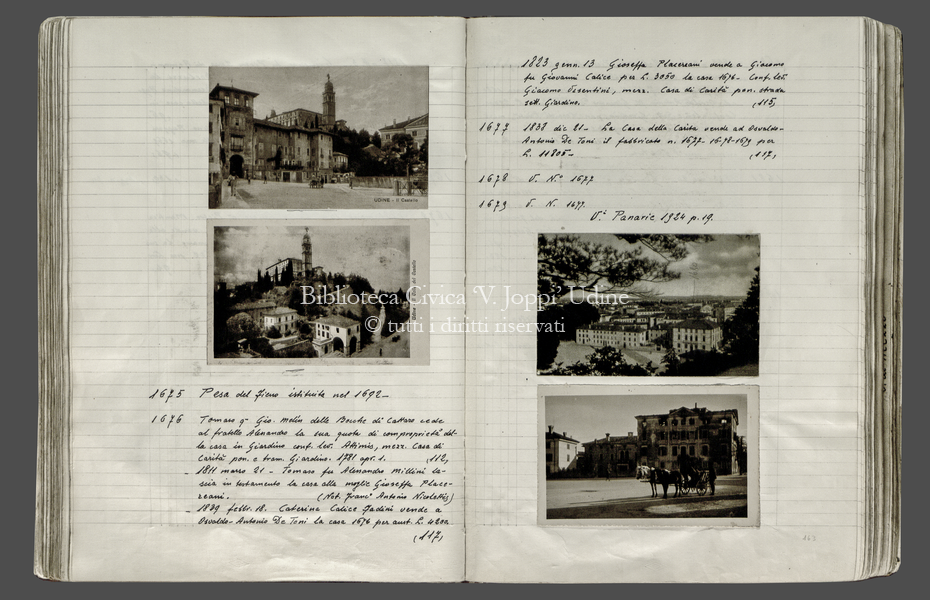 UDINE - Il Castello
1675 Pesa del fieno istituita nel 1692-
1676 Tomaso q.m Gio. Molin delle Bocche di Cattaro cede
al fratello Alessandro la sua quota di comproprietà del-
la casa in Giardino conf. lev. Attimis, mezz. Casa di
Carità pon. e tram. Giardino. 1781 apr. 1. (112)
- 1811 marzo 21 - Tomaso fu Alessandro Millini la-
scia in testamento la casa alla moglie Gioseffa Place-
reani. (Not. Franc° Antonio Nicolettis)
- 1839 febbr. 18. Caterina Calice Gadini vende a
Osvaldo-Antonio De Toni la casa 1676 per aust. L. 4200
(117)
1823 genn. 13 Gioseffa Placereani vende a Giacomo
fu Giovanni Calice per L. 3050 la casa 1676- Conf. lev.
Giacomo mezz. Casa di Carità pon. strada
sett. Giardino. (115)
1677 1838 dic 21- La Casa della Carità vende ad Osvaldo-
Antonio De Toni il fabbricato n. 1677-1678-1679 per
L. 11805- (117)
1678 V. N° 1677
1679 V. N. 1677.
V.i Panarie 1924 p. 19.
Biblioteca Civica 'V. Joppi' Udine
© tutti i diritti riservati
163